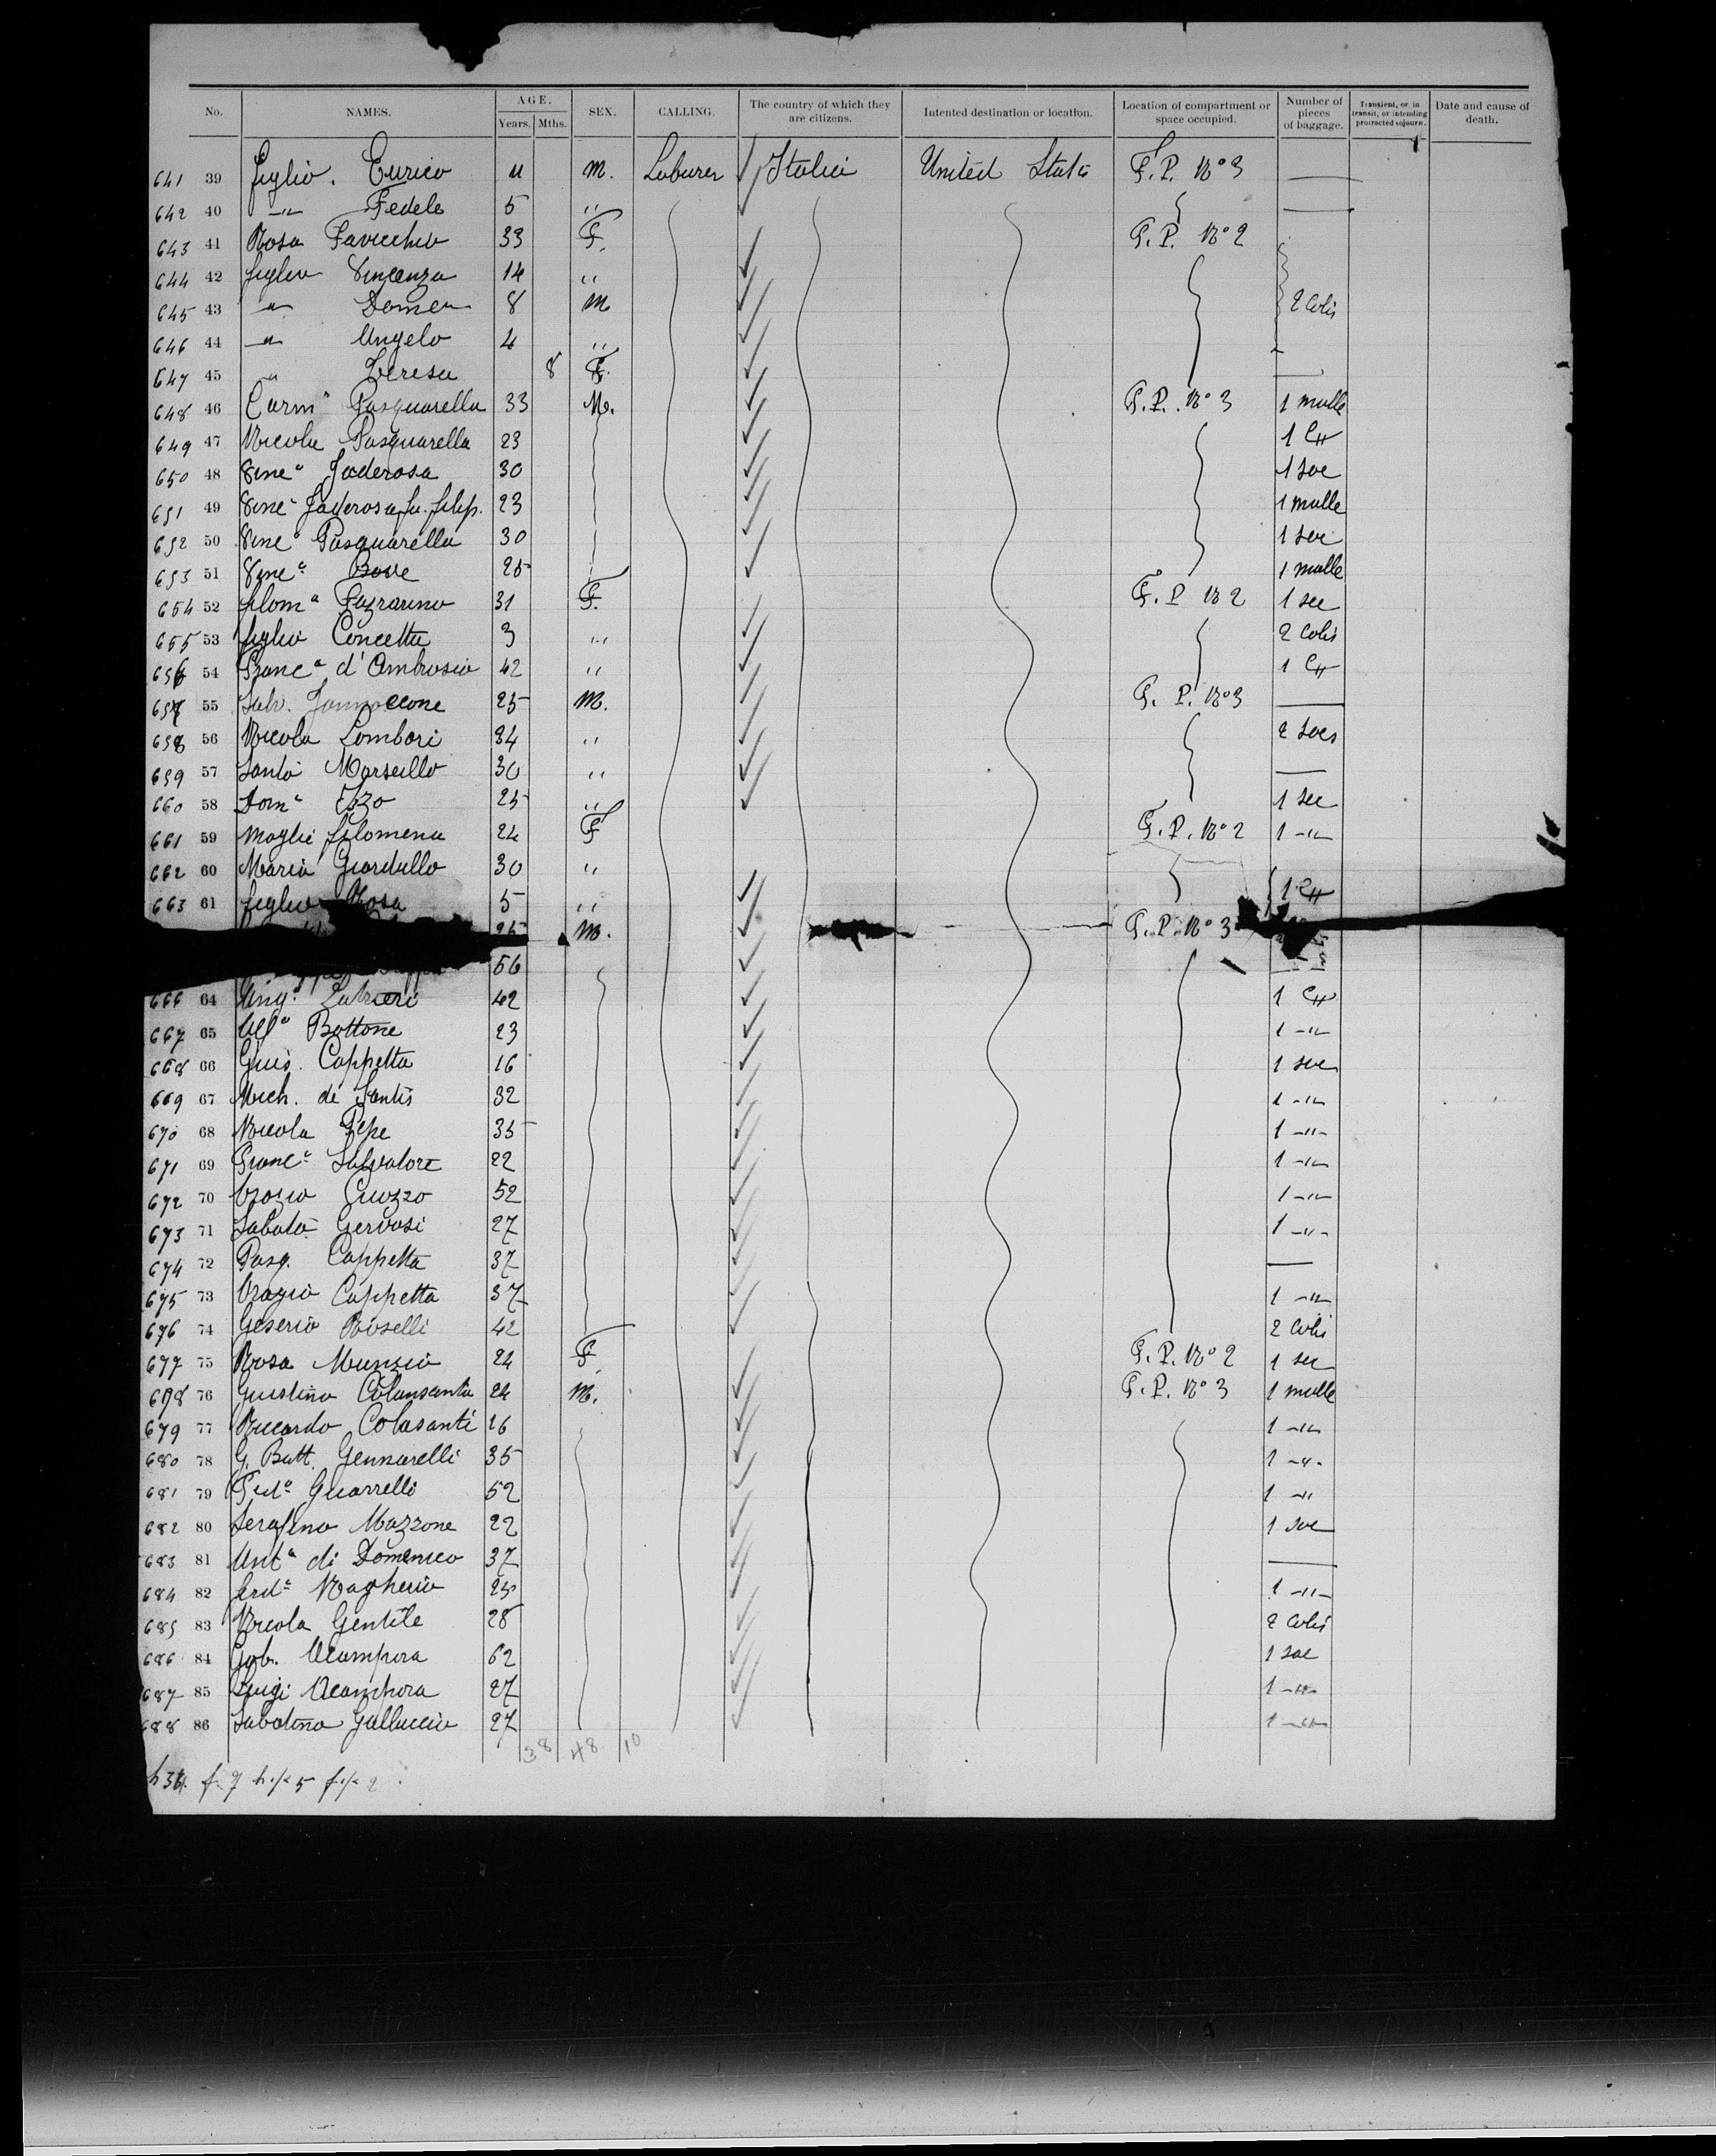 No. NAMES. AGE. Years. Mths. SEX. CALLING. The country of which they are citizens. Intented destination or location. Location of compartment or space occupied. Number of pieces of baggage. Transient, or in transit, or intending protracted sojourn. Date and cause of death.
641 39 figlio. Enrico 11 M. Laburer Italia United States F.P. No 3 —
642 40 -"- Fedele 5 " —
643 41 Rosa 33 F. F.P. No 2
644 42 figlia Vincenza 14 "
645 43 " Domen 8 M 2 Colis
646 44 -"- Angelo 4 "
647 45 -"- Teresa 8 F. —
648 46 Carmo Pasquarella 33 M. F.P. No 3 1 malle
649 47 Nicola Pasquarella 23 1
650 48 Vinco Jaderosa 30 1 sac
651 49 Vinco Jaderosa fu. filip. 23 1 malle
652 50 Vinco Pasquarella 30 1 sac
653 51 Vinco Bove 25 1 malle
654 52 filoma 31 F. F.P No 2 1 sac
655 53 figlia Concetta 3 " 2 Colis
656 54 Franca d'Ambrosio 42 " 1
657 55 Salv. Jannaccone 25 M. F. P. No 3 —
658 56 Nicola Lombari 34 " 2 sacs
659 57 Santo Marseillo 30 " —
660 58 Domo Izzo 25 " 1 sac
661 59 moglie filomena 24 F F.P. No 2 1 -"-
662 60 Maria Giardullo 30 "
663 61 figlia Rosa 5 " 1
M. F.P. No 3
56
666 64 Ango 42 1
667 65 Alfo Bottone 23 1 -"-
668 66 Gius. Cappetta 16 1 sac
669 67 Mich. de Santis 32 1 -"-
670 68 Nicola Pepe 35 1 -"-
671 69 Franco Salvatore 22 1 -"-
672 70 Orazio 52 1 -"-
673 71 Sabato Gervasi 27 1 -"-
674 72 Pasq. Cappetta 37 —
675 73 Orazio Cappetta 37 1 -"-
676 74 42 2 Colis
677 75 Rosa Munzio 24 F F.P. No 2 1 sac
678 76 Giustino 24 M. F.P. No 3 1 malle
679 77 Riccardo Colasanti 26 1 -"-
680 78 G. Batt. Gennarelli 35 1 -"-
681 79 Guarrelli 52 1 -"
682 80 Serafino Mazzone 22 1 sac
683 81 Anto di Domenico 37 —
684 82 ferdo 25 1 -"-
685 83 Nicola Gentile 28 2 Colis
686 84 Acampora 62 1 sac
687 85 Luigi Acampora 27 1 -"-
688 86 Sabatino Galluccio 27 1 -"-
38 48 10